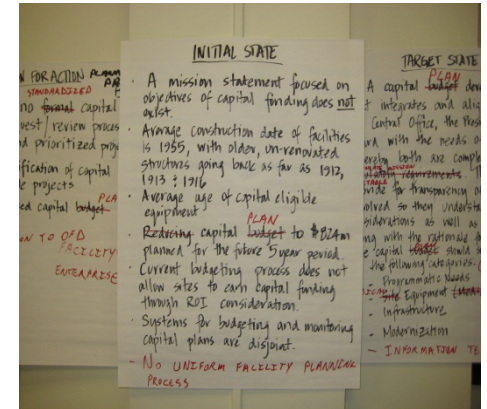 INITIAL STATE
· A mission statement focused on
objectives of capital funding does not
exist.
· Average construction date of facilities
is 1955, with older, un-renovated
structures going back as far as 1912,
1913 & 1916
· Average age of capital eligible
equipment
PLAN
· Reducing capital budget to $ planned for the future 5 year period.
· Current budgeting process does not
allow sites to earn capital funding
through ROI consideration.
· Systems for budgeting and monitoring
capital plans are disjoint.
- NO UNIFORM FACILITY PLANNING
PROCESS
FOR ACTION
STANDARDIZED
no formal capital
review process
prioritized
ification of capital
projects
PLA
ed capital budget
ON TO OFD
FACILITY
ENTERPRISE
TARGET STATE
PLAN
A capital budget
integrates and
Central Office, the
with the needs
both are
MISSION
requirements
for transparency
so they
siderations as well as
with the rationale
capital
the following categories
- Programmatic Needs
- Site Equipment
- Infrastructure
- Modernization
- INFORMATION TE